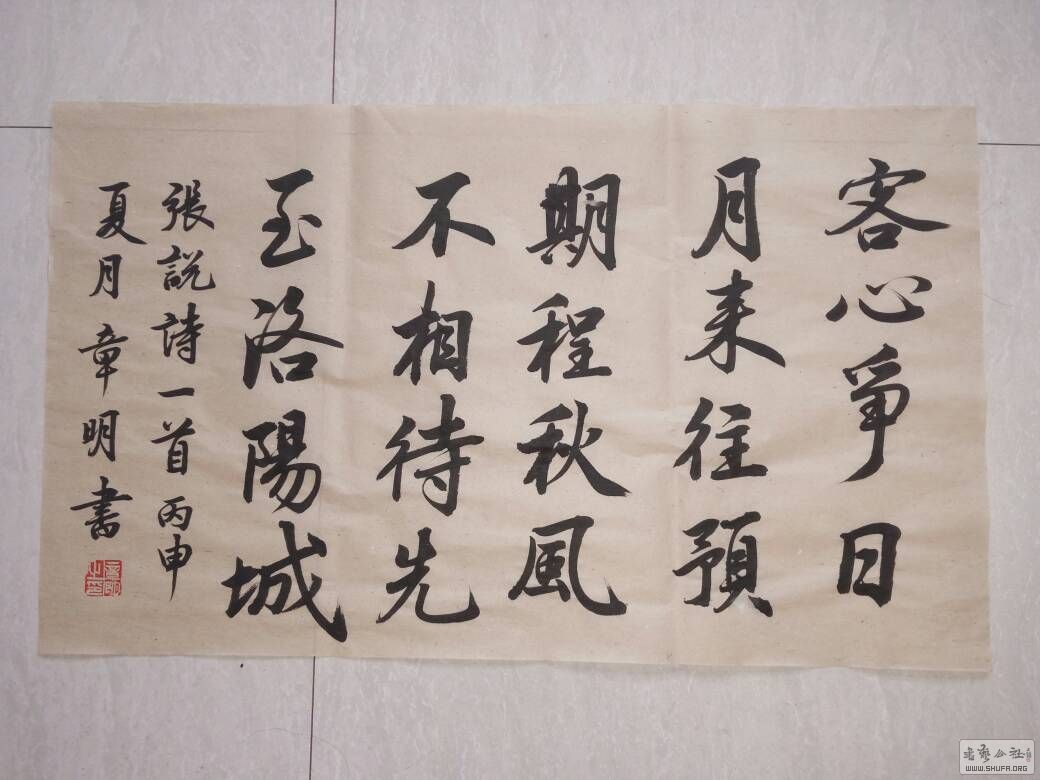 客心爭日
月来往預
期程秋風
不相待先
至洛陽城
張説詩一首丙申
夏月章明書
章明之印
書藝公社
WWW.SHUFA.ORG